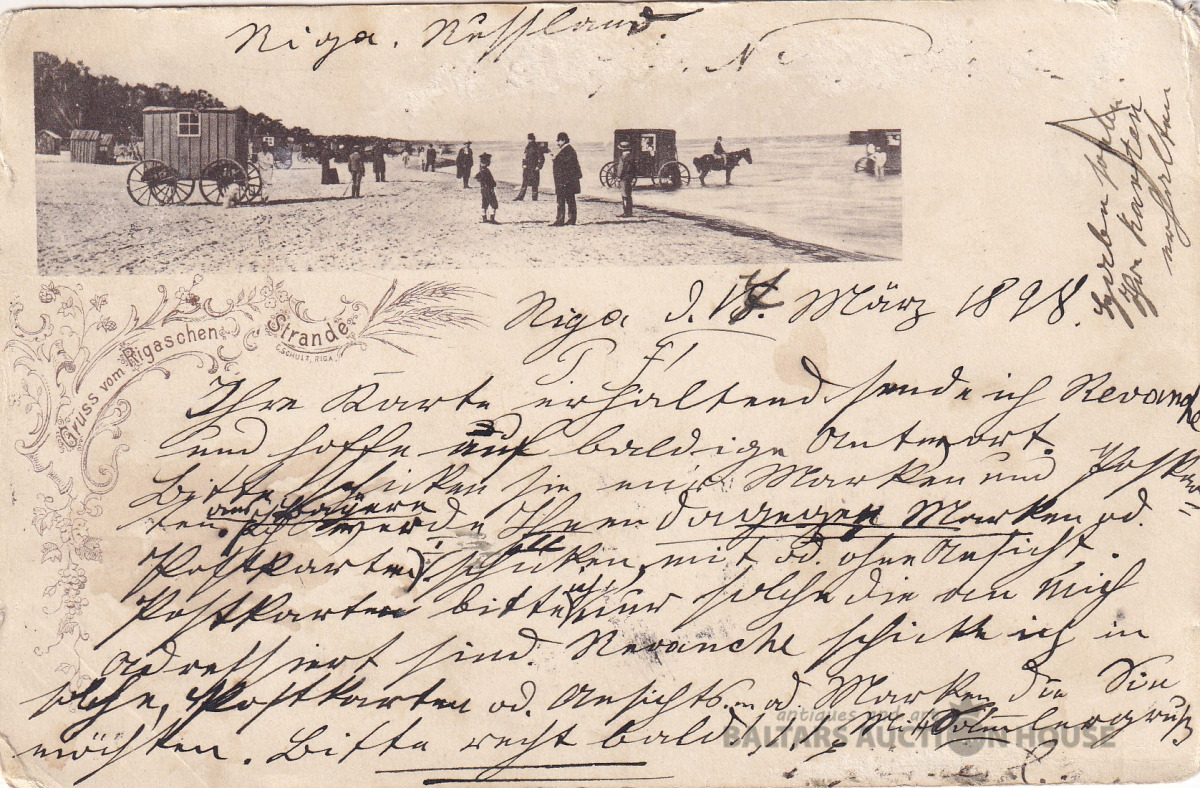 Riga. Russland.
Gruss vom Rigaschen Strande
E. SCHULT, RIGA.
Riga d. März 1898.
P. P.
Ihre Karte erhaltend sende ich Revanche
und hoffe auf baldige Antwort.
Bitte schicken Sie mir Marken und Postkar-
ten aus Bayern werde Ihnen dagegen Marken od.
Postkarten schicken, mit od. ohne Ansicht.
Postkarten bitte nur solche die an mich
adressiert sind. Revanche schicke ich in
solche, Postkarten od. Ansichts. Marken die Sie
möchten. Bitte recht bald! Mit Sammlergruß
antiques and art
BALTARS AUCTION HOUSE